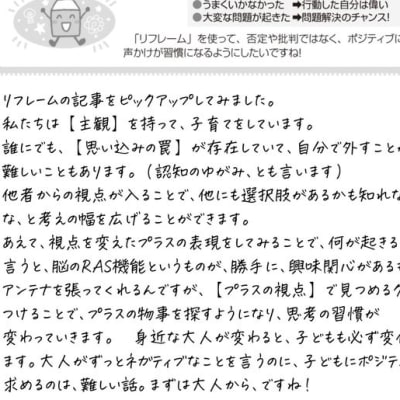 ●うまくいかなかった ➡行動した自分は偉い
●大変な問題が起きた ➡問題解決のチャンス!
「リフレーム」を使って、否定や批判ではなく、ポジティブに
声かけが習慣になるようにしたいですね!
リフレームの記事をピックアップしてみました。
私たちは【主観】を持って、子育てをしています。
誰にでも、【思い込みの罠】が存在していて、自分で外すこと
難しいこともあります。(認知のゆがみ、とも言います)
他者からの視点が入ることで、他にも選択肢があるかも知れな
な、と考えの幅を広げることができます。
あえて、視点を変えたプラスの表現をしてみることで、何が起きる
言うと、脳のRAS機能というものが、勝手に、興味関心がある
アンテナを張ってくれるんですが、【プラスの視点】で見つめる
つけることで、プラスの物事を探すようになり、思考の習慣が
変わっていきます。 身近な大人が変わると、子どもも必ず変
ます。大人がずっとネガティブなことを言うのに、子どもにポジテ
求めるのは、難しい話。まずは大人から、ですね!